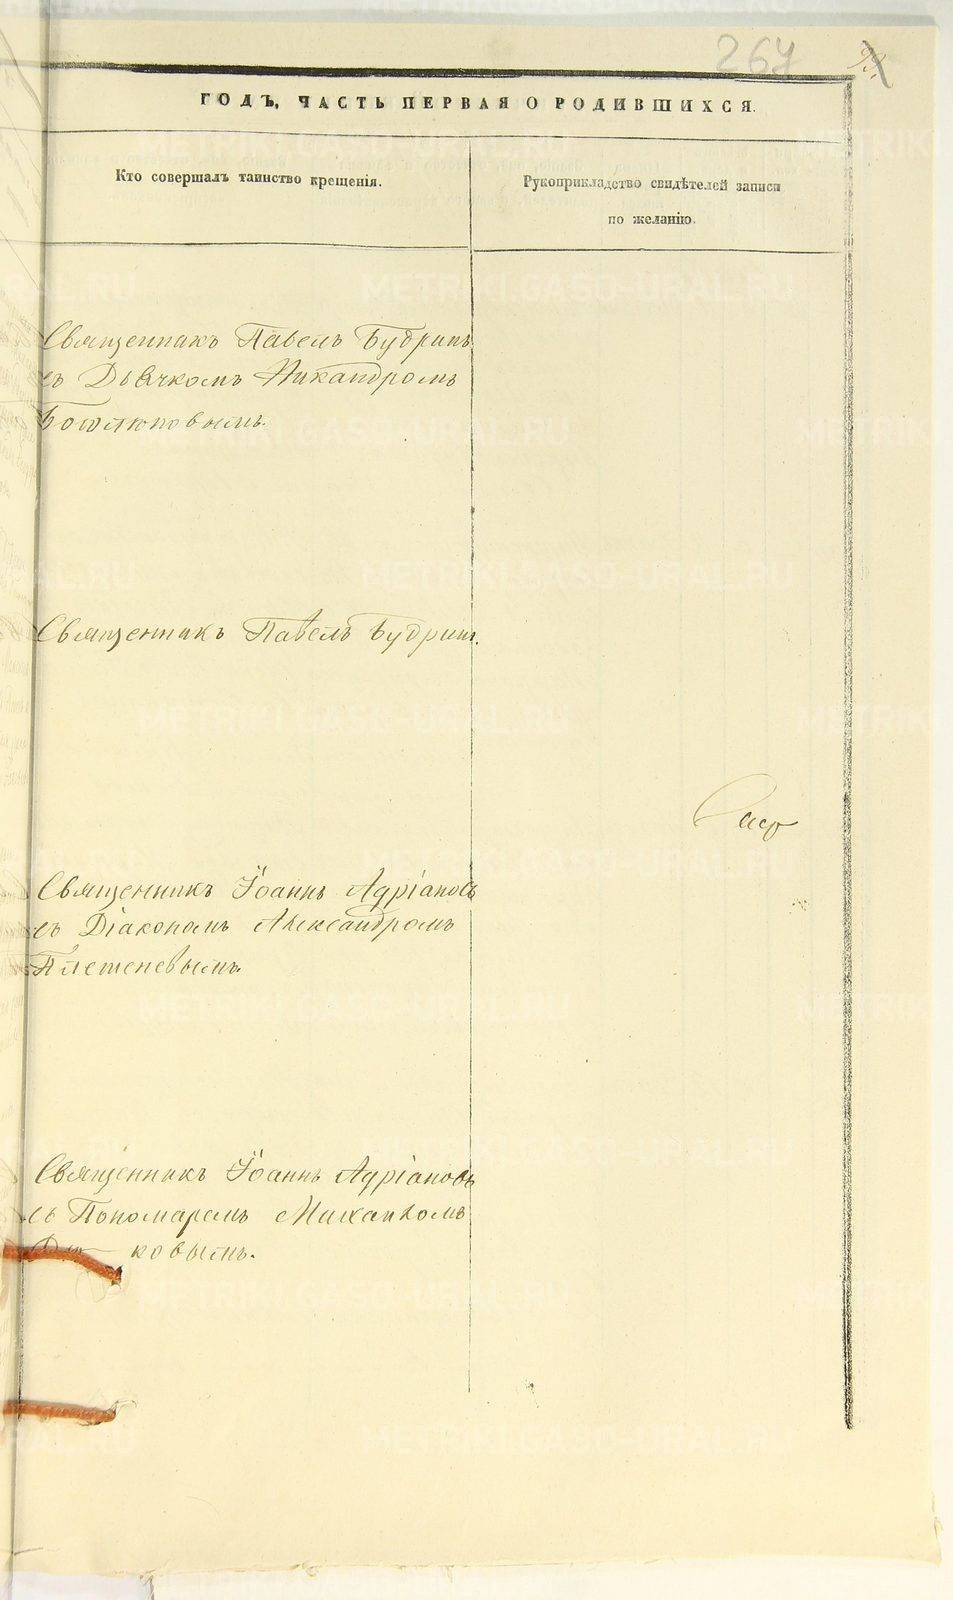 267
93.
ГОДЪ, ЧАСТЬ ПЕРВАЯ О РОДИВШИХСЯ.
Кто совершалъ таинство крещенія.
Рукоприкладство свидѣтелей записи
по желанію.
Священникъ Павелъ Будринъ
съ Дьячкомъ Никандромъ
Боголюповымъ.
Священникъ Павелъ Будринъ.
Священникъ Іоаннъ Адріановъ
съ Діакономъ Александромъ
Плетеневымъ.
Священникъ Іоаннъ Адріановъ
съ Пономаремъ Михаиломъ
ковымъ.
METRIKI.GASO-URAL.RU